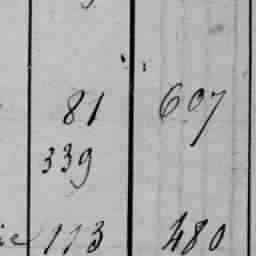 81 607
339
ie 113 480